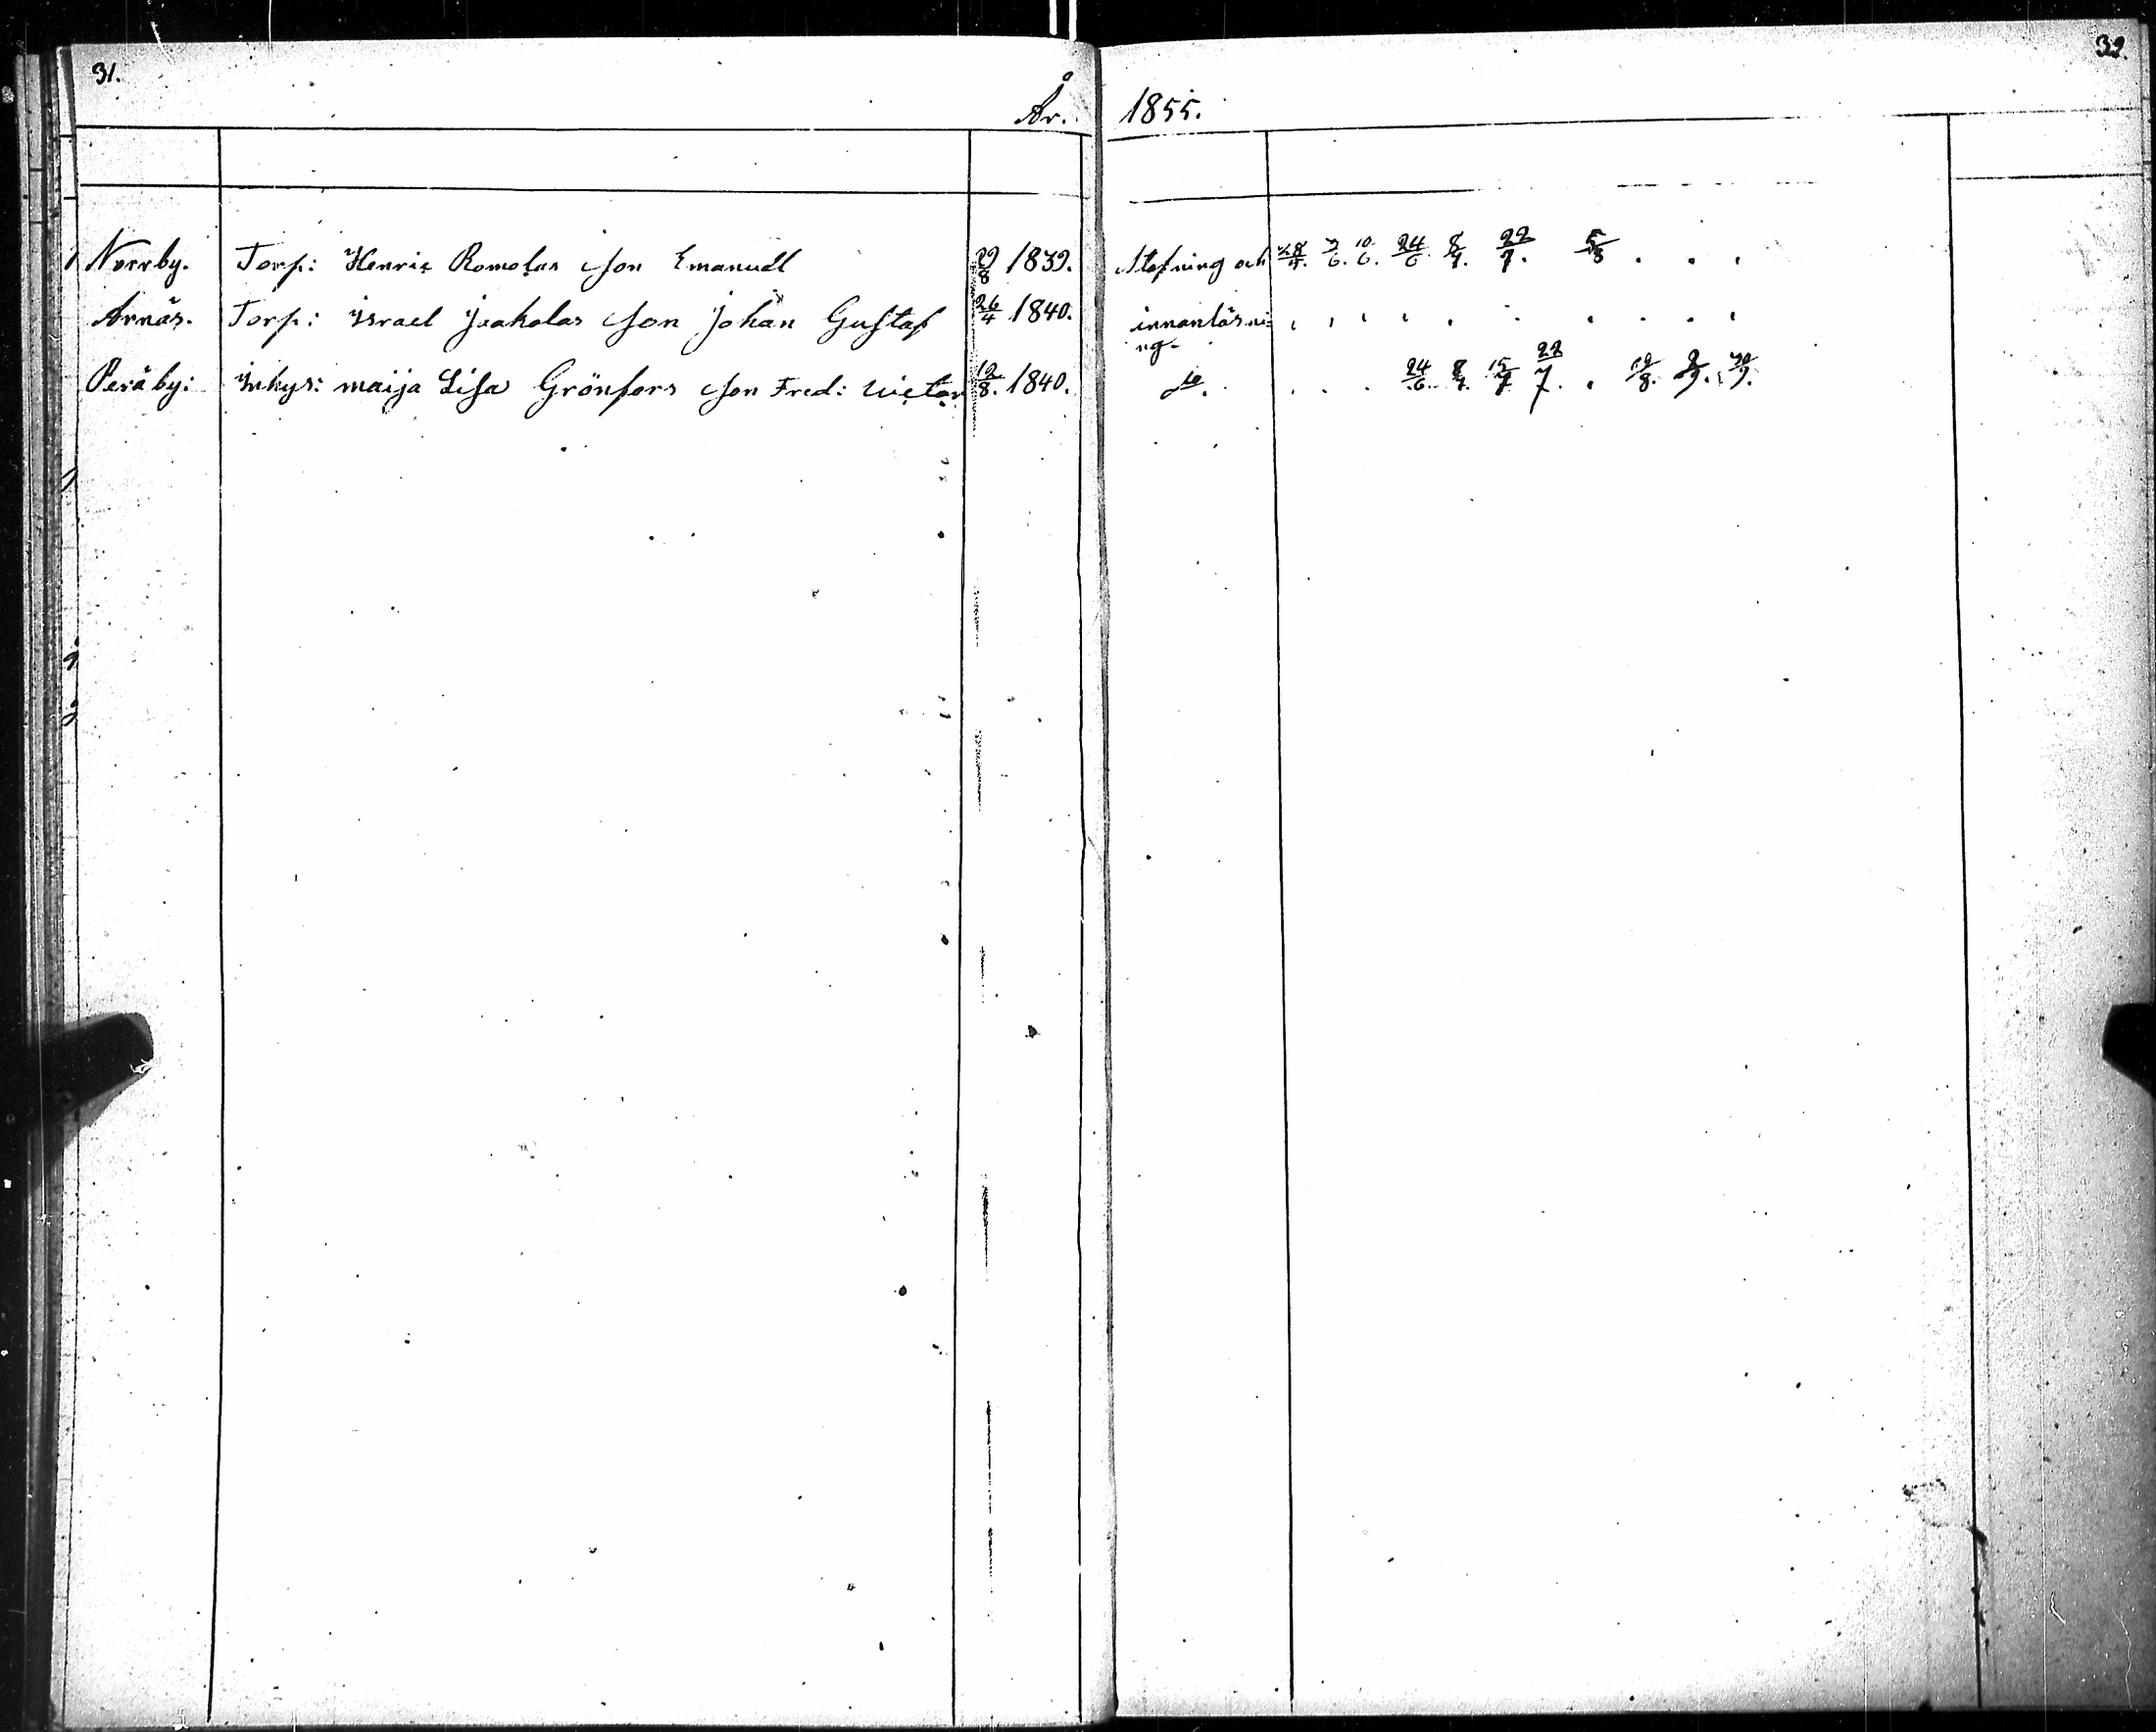 31.
32.
År. 1855.
Norrby. Torp: Henric Romolas Son Emanuel 29/8 1839. Stafning och 28/5. 3/6. 10/6. 24/6 8/7. 22/7. 5/8 . . .
Arnäs. Torp: Israel Jaakolas Son Johan Gustaf 26/4 1840. innanläsni=
ng.
Peräby: Inhys: maija Lisa Grönfors Son Fred: Victor 12/8. 1840. 24/6. 8/7. 15/7 22/7. . 19/8. 2/9. 30/9.